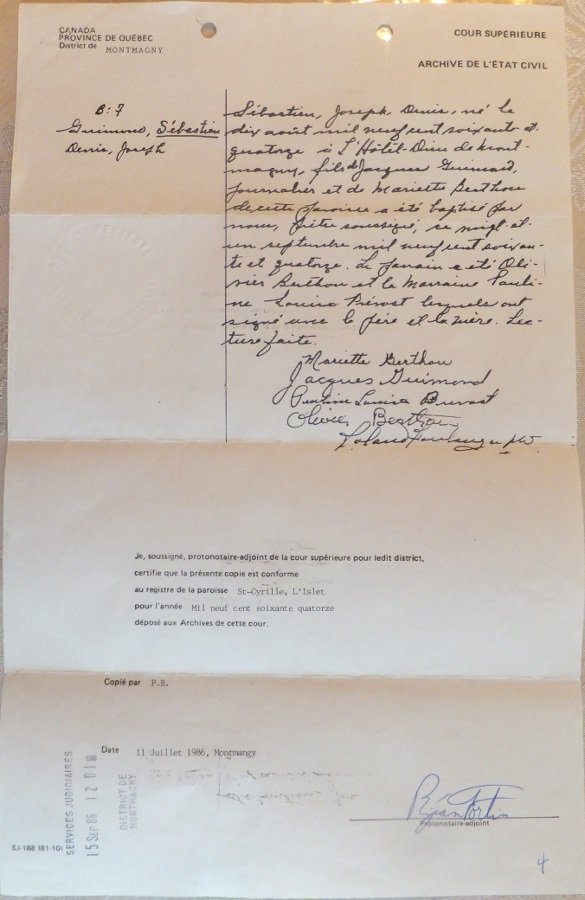 CANADA
PROVINCE DE QUÉBEC
District de MONTMAGNY
COUR SUPÉRIEURE
ARCHIVE DE L'ÉTAT CIVIL
B: 7
Guimond, Sébastien
Denis, Joseph
Sébastien, Joseph, Denis, né le
dix août mil neuf cent soixante et
quatorze à L'Hôtel-Dieu de Mont-
magny, fils de Jacques Guimond,
journalier et de Mariette Berthou
de cette paroisse a été baptisé par
nous, prêtre soussigné, ce vingt-et-
un septembre mil neuf cent soixan-
te et quatorze. Le parrain a été Oli-
vier Berthou et la Marraine Pauli-
ne Louise Prévost lesquels ont
signé avec le père et la mère. Lec-
ture faite.
Mariette Berthou
Jacques Guimond
Pauline Louise Prevost
Olivier Berthou
Roland Boulanger ptre
Je, soussigné, protonotaire-adjoint de la cour supérieure pour ledit district,
certifie que la présente copie est conforme
au registre de la paroisse St-Cyrille, L'Islet
pour l'année Mil neuf cent soixante quatorze
déposé aux Archives de cette cour.
Copié par P.B.
Date 11 Juillet 1986, Montmangy
SERVICES JUDICIAIRES
15 SEP 86 12 01
DISTRICT DE
MONTMAGNY
Réjean Fortin
Protonotaire-adjoint
SJ-188 (81-10)
4